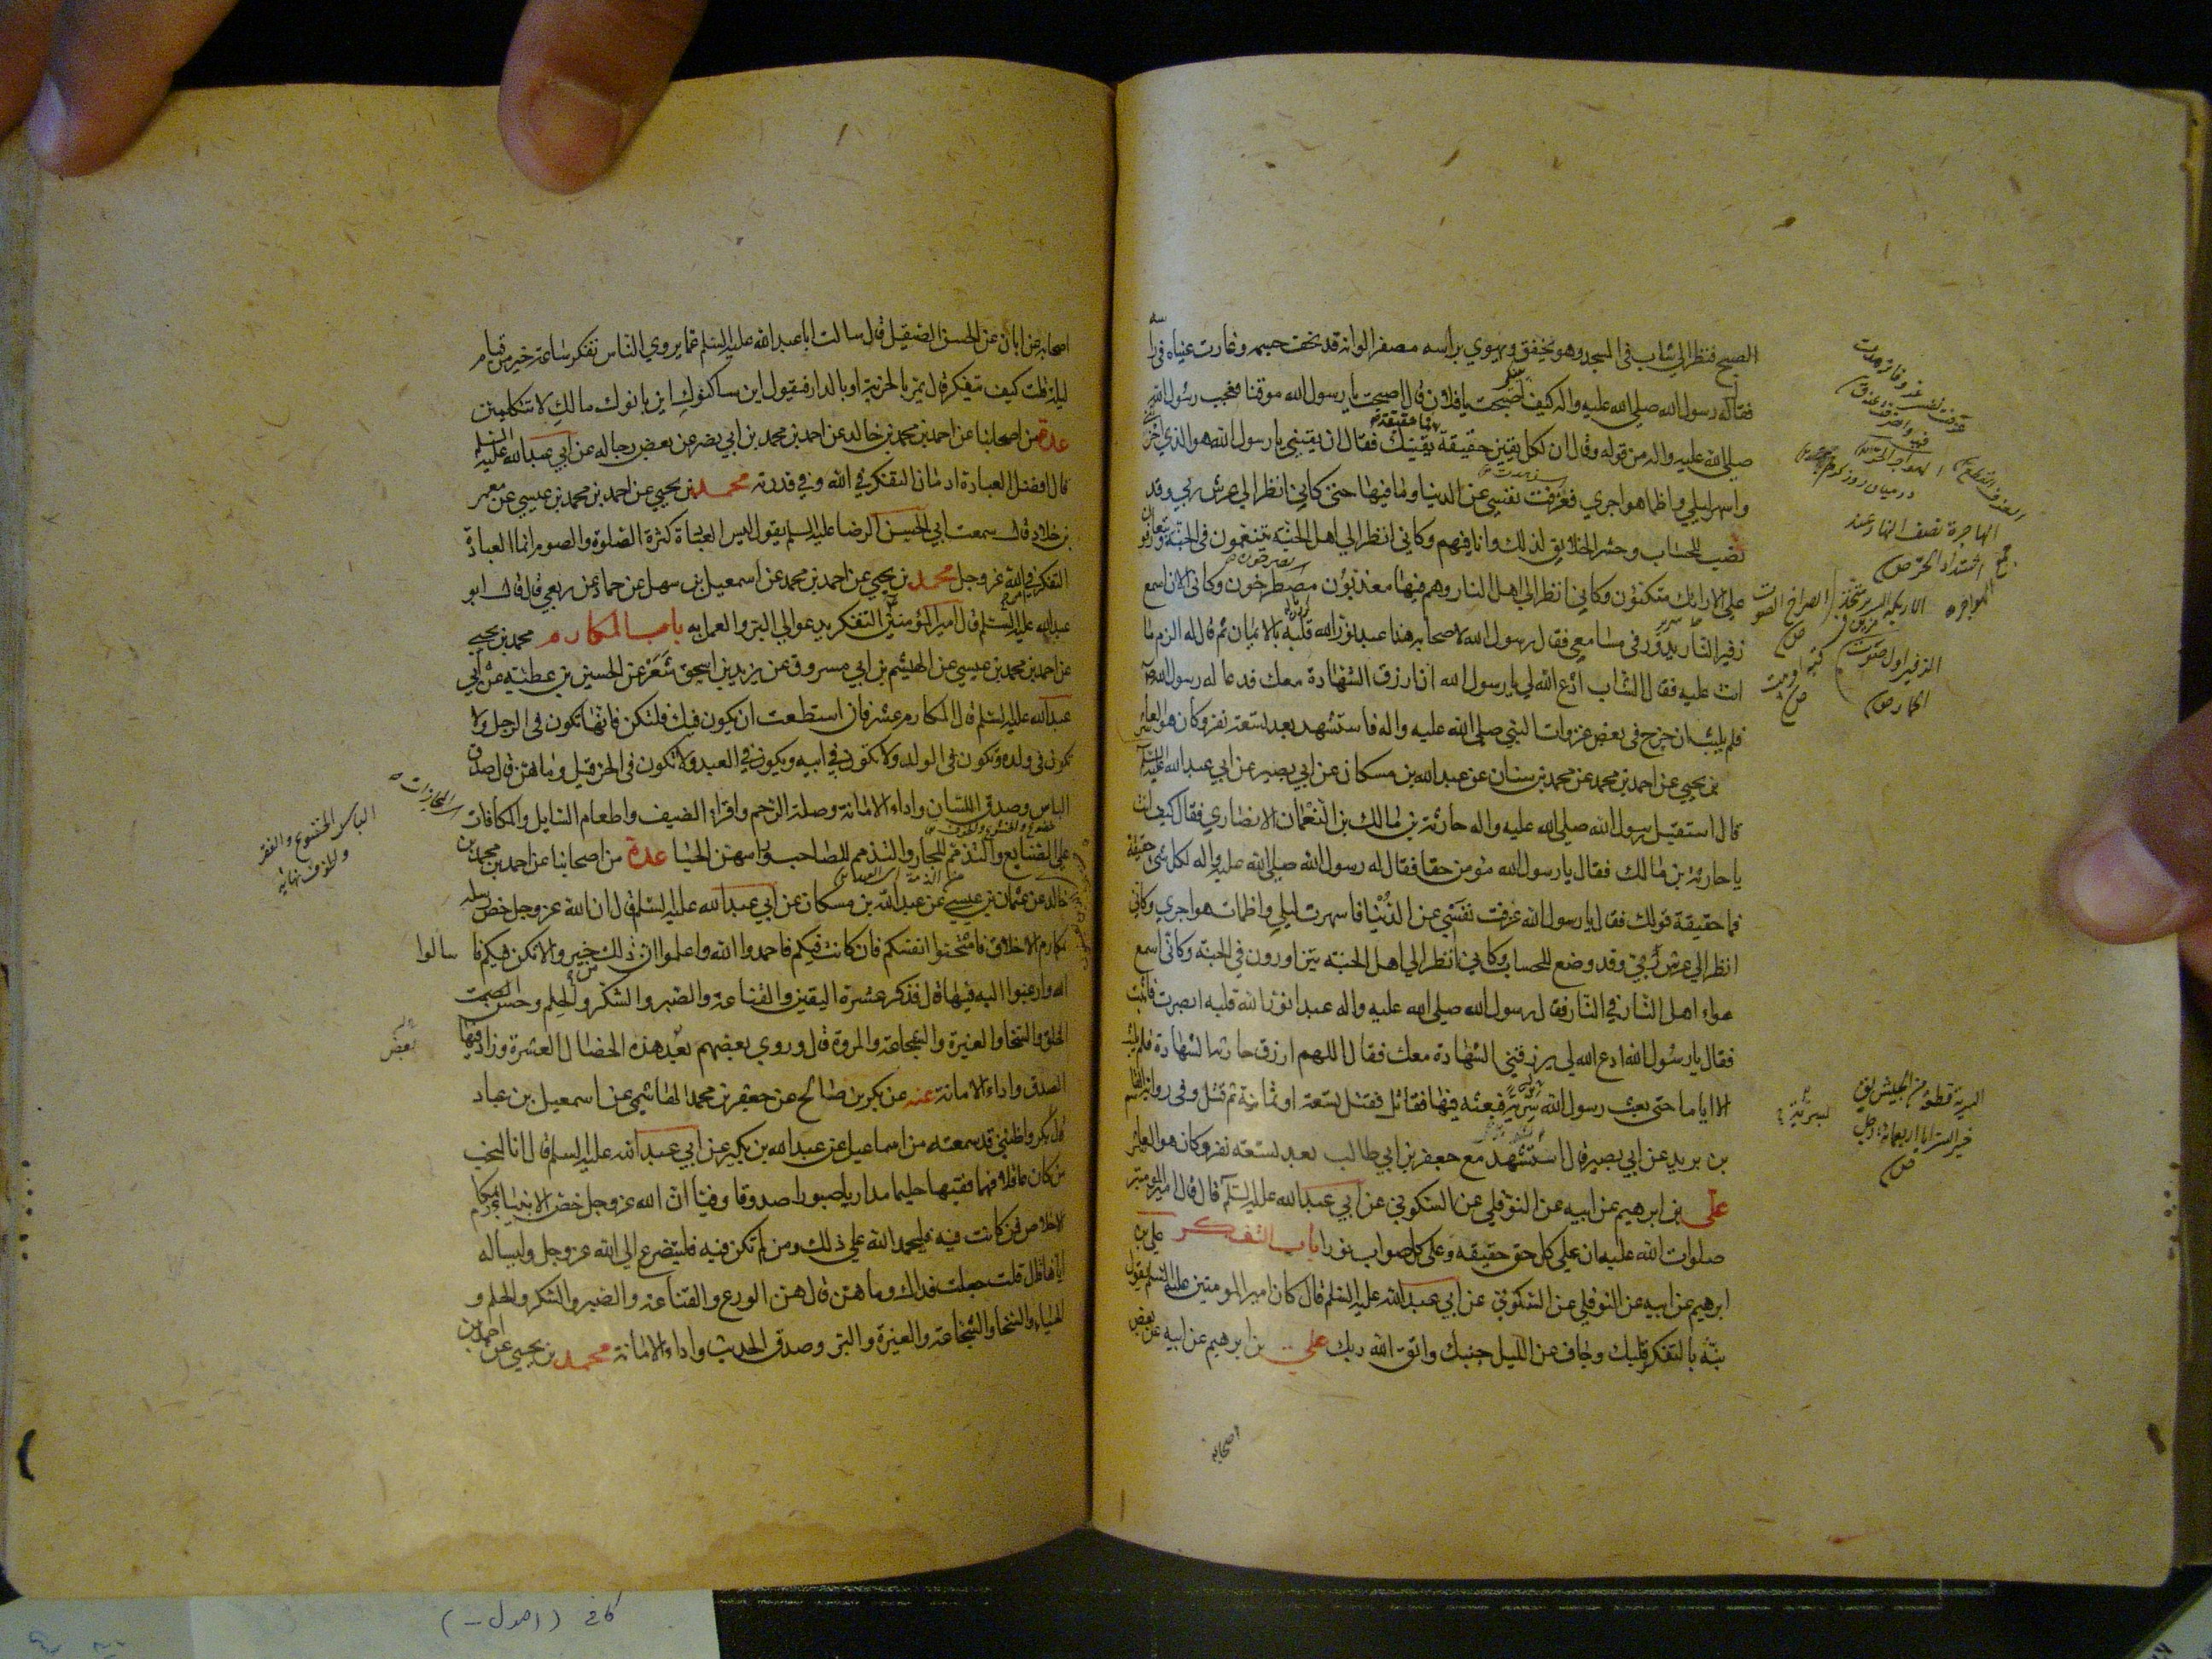 الصبح فنظر الي شاب في المسجد وهو يخفق ويهوي براسه مصفرا لونه قد نحف جسمه وغارت عيناه في راسه
فقال له رسول الله صلي الله عليه واله كيف اصبحت يا فلان قال اصبحت يا رسول الله موقنا فعجب رسول الله
صلي الله عليه واله من قوله وقال ان لكل يقين حقيقة فما حقيقة يقينك فقال ان يقيني يا رسول الله هو الذي احزنني
واسهر ليلي واظما هواجري فعزفت نفسي عن الدنيا وما فيها حتى كاني انظر الي عرش ربي وقد
نصب للحساب وحشر الخلايق لذلك وانا فيهم وكاني انظر الي اهل الجنة يتنعمون في الجنة ويتعارفون
علي الارايك متكئون وكاني انظر الي اهل النار وهم فيها معذبون مصطرخون وكاني الان اسمع
زفير النار يدور في مسامعي فقال رسول الله لاصحابه هذا عبد نور الله قلبه بالايمان ثم قال له الزم ما
انت عليه فقال الشاب ادع الله لي يا رسول الله ان ارزق الشهادة معك فدعا له رسول الله
فلم يلبث ان خرج في بعض غزوات النبي صلي الله عليه واله فاستشهد بعد تسعة نفر وكان هو العاشر
بن يحيي عن احمد بن محمد عن محمد بن سنان عن عبد الله بن مسكان عن ابي بصير عن ابي عبد الله عليه السلم
قال استقبل رسول الله صلي الله عليه واله حارثة بن مالك بن النعمان الانصاري فقال كيف انت
يا حارثة بن مالك فقال يا رسول الله مؤمن حقا فقال له رسول الله صلي الله عليه واله لكل شئ حقيقة
فما حقيقة قولك فقال يا رسول الله عزفت نفسي عن الدنيا فاسهرت ليلي واظمات هواجري وكاني
انظر الي عرش ربي وقد وضع للحساب وكاني انظر الي اهل الجنة يتزاورون في الجنة وكاني اسمع
عواء اهل النار في النار فقال رسول الله صلي الله عليه واله عبد نور الله قلبه ابصرت فاثبت
فقال يا رسول الله ادع الله لي يرزقني الشهادة معك فقال اللهم ارزق حارثة الشهادة فلم يلبث
الا اياما حتى بعث رسول الله سرية فبعثه فيها فقاتل فقتل تسعة او ثمانية ثم قتل وفي رواية القسم
بن بريد عن ابي بصير قال استشهد مع جعفر بن ابي طالب بعد تسعة نفر وكان هو العاشر
علي بن ابرهيم عن ابيه عن النوفلي عن السكوني عن ابي عبد الله عليه السلم قال قال امير المومنين
صلوات الله عليه ان علي كل حق حقيقة وعلي كل صواب نورا باب التفكر علي بن
ابرهيم عن ابيه عن النوفلي عن السكوني عن ابي عبد الله عليه السلم قال كان امير المومنين عليه السلم يقول
نبه بالتفكر قلبك وجاف عن الليل جنبك واتق الله ربك علي بن ابرهيم عن ابيه عن بعض
اصحابه
الهاجرة نصف النهار عند
اشتداد الحر ص
الزفير اول صوت
الحمار ص
السرية قطعة من الجيش يق
خير السرايا اربعمائة رجل
ص
اصحابه عن ابان عن الحسن الصيقل قال سالت ابا عبد الله عليه السلم عما يروي الناس تفكر ساعة خير من قيام
ليلة قلت كيف يتفكر قال يمر بالخربة او بالدار فيقول اين ساكنوك اين بانوك مالك لا تتكلمين
عدة من اصحابنا عن احمد بن محمد بن خالد عن احمد بن محمد بن ابي نصر عن بعض رجاله عن ابي عبد الله عليه السلم
قال افضل العبادة ادمان التفكر في الله وفي قدرته محمد بن يحيي عن احمد بن محمد بن عيسي عن معمر
بن خلاد قال سمعت ابي الحسن الرضا عليه السلم يقول ليس العبادة كثرة الصلوة والصوم انما العبادة
التفكر في امر الله عز وجل محمد بن يحيي عن احمد بن محمد عن اسمعيل بن سهل عن حماد عن ربعي قال قال ابو
عبد الله عليه السلم قال امير المؤمنين التفكر يدعو الي البر والعمل به باب المكارم محمد بن يحيي
عن احمد بن محمد بن عيسي عن الهيثم بن ابي مسروق عن يزيد بن اسحق شعر عن الحسين بن عطية عن ابي
عبد الله عليه السلم قال المكارم عشر فان استطعت ان يكون فيك فلتكن فانها تكون في الرجل ولا
تكون في ولده وتكون في الولد ولا تكون في ابيه ويكون في العبد ولا تكون في الحر قيل وما هن قال صدق
الباس وصدق اللسان واداء الامانة وصلة الرحم واقراء الضيف واطعام السايل والمكافات
علي الصنايع والتذمم للجار والتذمم للصاحب وراسهن الحيا عدة من اصحابنا عن احمد بن محمد بن
خالد عن عثمان بن عيسي عن عبد الله بن مسكان عن ابي عبد الله عليه السلم قال ان الله عز وجل خص رسله
بمكارم الاخلاق فامتحنوا انفسكم فان كانت فيكم فاحمدوا الله واعلموا ان ذلك من خير والا تكن فيكم فاسالوا
الله وارغبوا اليه فيها قال فذكر عشرة اليقين والقناعة والصبر والشكر والحلم وحسن
الخلق والسخا والغيرة والشجاعة والمروة قال وروي بعضهم بعد هذه الخصال العشرة وزاد فيها
الصدق واداء الامانة عنه عن بكر بن صالح عن جعفر بن محمد الهاشمي عن اسمعيل بن عباد
قال بكر واظنني قد سمعته من اسماعيل عن عبد الله بن بكير عن ابي عبد الله عليه السلم قال انا لنحب
من كان عاقلا فهما فقيها حليما مداريا صبورا صدوقا وفيا ان الله عز وجل خص الانبياء بمكارم
الاخلاق فمن كانت فيه فليحمد الله علي ذلك ومن لم تكن فيه فليتضرع الي الله عز وجل وليساله
اياها قال قلت جعلت فداك وما هن قال هن الورع والقناعة والصبر والشكر والحلم و
الحياء والسخا والشجاعة والغيرة والبر وصدق الحديث واداء الامانة محمد بن يحيي عن احمد بن
الباس الخشوع والفقر
والخوف نهايه
كافي (اصول -)